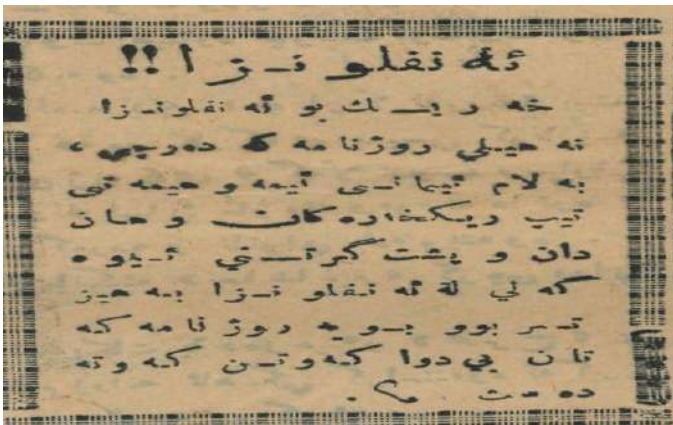 ئه نفلو نـز ا !!
خه ر یـك بو ئه نفلونـزا
نه هیـلی روژنا مه که ده رچی ،
به لام ئیما نـی ئیمه و هیمه تی
تیپ ریـکخاره کان و هان
دان و پشت گرتـنی ئـیوه
که لی له ئه نفلو نـزا به هیز
تـر بوو بـو یه روژ نا مه که
تا ن بی دوا که و تـن که وته
ده ست